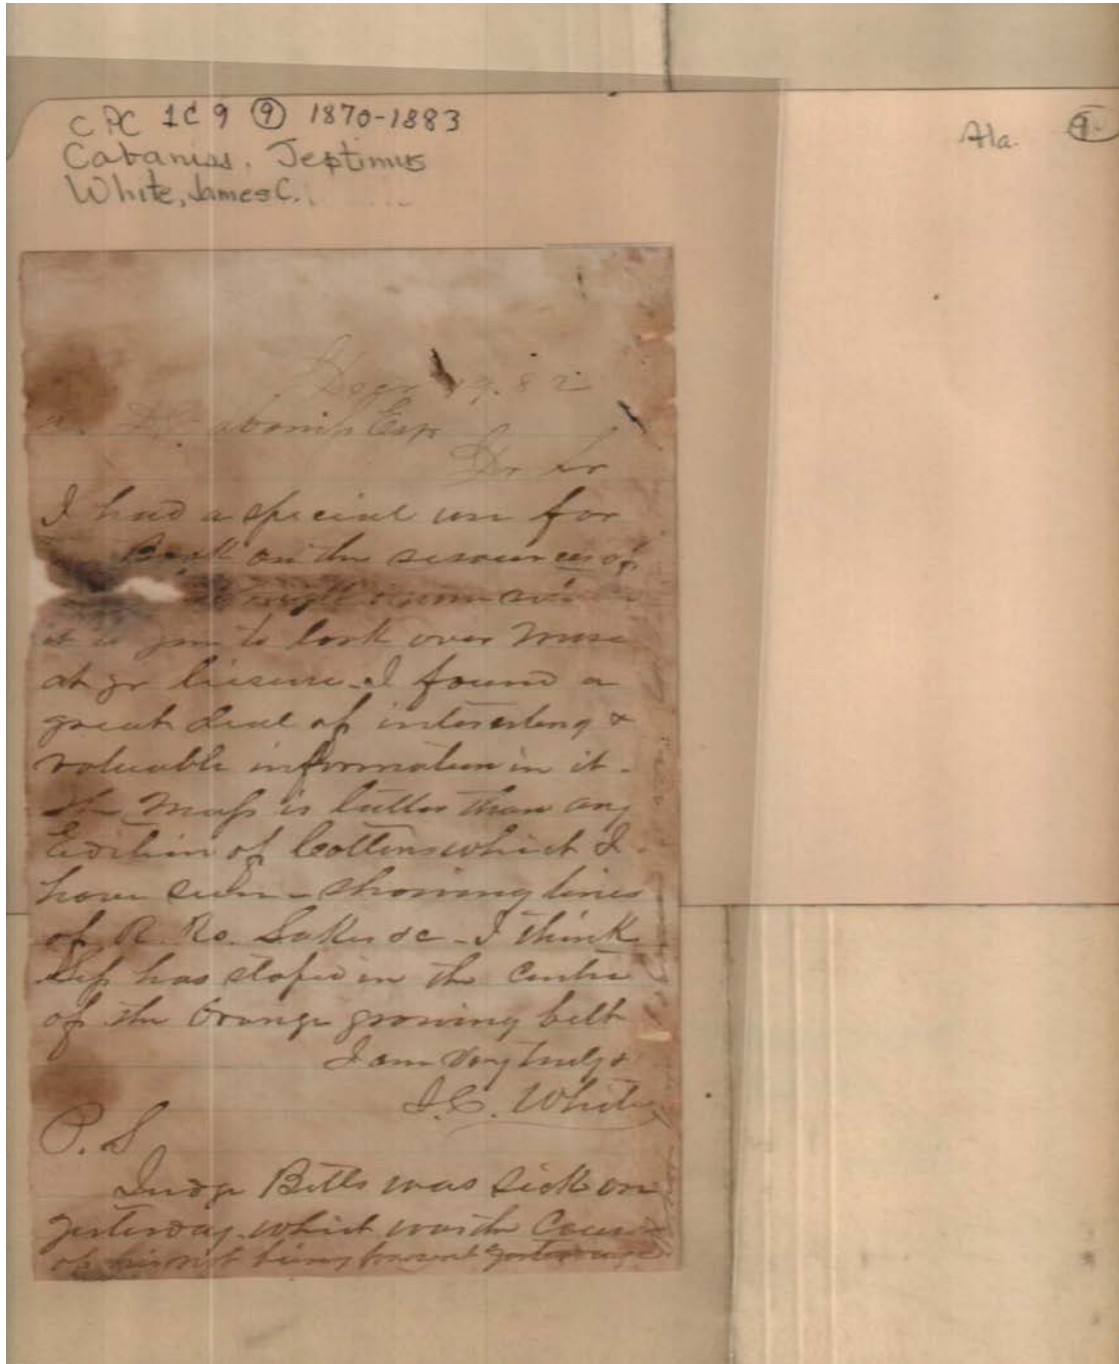 CPC 1C9 (9) 1870-1883
Cabaniss, Septimus
White, James C.
Ala. (9)
Decr 19. 82
Cabaniss Esqr
Dr Sr
I had a special use for
Book on the resources of
it to you to look over more
at yr liesure. I found a
great deal of interesting &
valuable information in it.
The Map is better than any
Edition of Coltons which I
have seen - showing lines
of R. Ro. Lakes &c - I think
Sep has stoped in the Centre
of the Orange growing belt
I am Very truly &
J.C. White
P.S
Judge Betts was sick on
yesterday which was the Cause
of his not being present yesterday